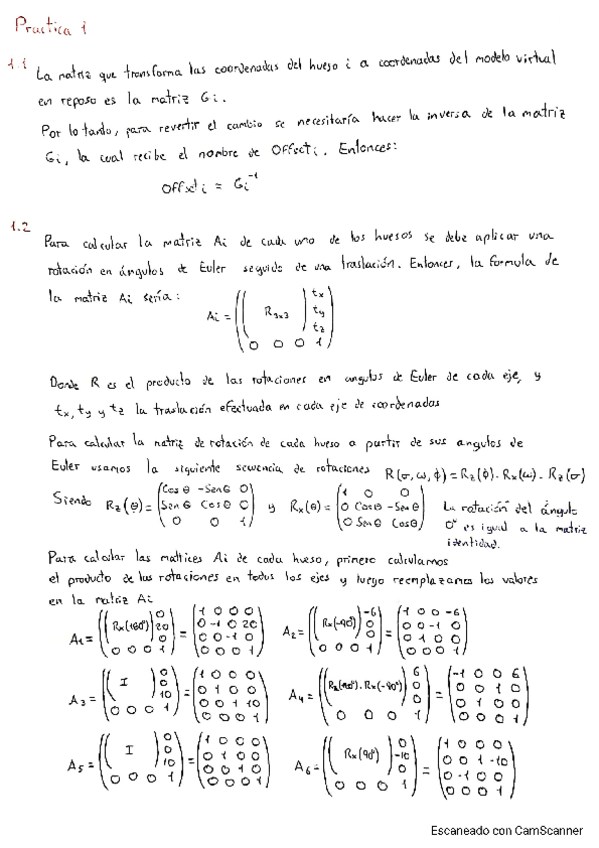 Practica 1
1.1 La matriz que transforma las coordenadas del hueso i a coordenadas del modelo virtual
en reposo es la matriz Gi.
Por lo tanto, para revertir el cambio se necesitaría hacer la inversa de la matriz
Gi, la cual recibe el nombre de Offseti. Entonces:
Offseti = Gi⁻¹
1.2 Para calcular la matriz Ai de cada uno de los huesos se debe aplicar una
rotación en ángulos de Euler seguido de una traslación. Entonces, la formula de
la matriz Ai sería:
Ai = ((R3x3) tx ty tz
0 0 0 1)
Donde R es el producto de las rotaciones en angulos de Euler de cada eje, y
tx, ty y tz la traslación efectuada en cada eje de coordenadas
Para calcular la matriz de rotación de cada hueso a partir de sus angulos de
Euler usamos la siguiente secuencia de rotaciones R(σ,ω,φ) = Rz(φ)·Rx(ω)·Rz(σ)
Siendo Rz(θ) = (Cosθ -Senθ 0 / Senθ Cosθ 0 / 0 0 1) y Rx(θ) = (1 0 0 / 0 Cosθ -Senθ / 0 Senθ Cosθ) La rotación del ángulo
0° es igual a la matriz
identidad.
Para calcular las matrices Ai de cada hueso, primero calculamos
el producto de las rotaciones en todos los ejes y luego reemplazamos los valores
en la matriz Ai
A1 = ((Rx(180°)) 0 20 0 / 0 0 0 1) = (1 0 0 0 / 0 -1 0 20 / 0 0 -1 0 / 0 0 0 1) A2 = ((Rx(-90°)) -6 0 0 / 0 0 0 1) = (1 0 0 -6 / 0 0 -1 0 / 0 1 0 0 / 0 0 0 1)
A3 = ((I) 0 0 10 / 0 0 0 1) = (1 0 0 0 / 0 1 0 0 / 0 0 1 10 / 0 0 0 1) A4 = ((·Rx(-90°)) 6 0 0 / 0 0 0 1) = (-1 0 0 6 / 0 0 1 0 / 0 1 0 0 / 0 0 0 1)
A5 = ((I) 0 0 10 / 0 0 0 1) = (1 0 0 0 / 0 1 0 0 / 0 0 1 0 / 0 0 0 1) A6 = ((Rx(90°)) 0 -10 0 / 0 0 0 1) = (1 0 0 0 / 0 0 1 -10 / 0 -1 0 0 / 0 0 0 1)
Escaneado con CamScanner